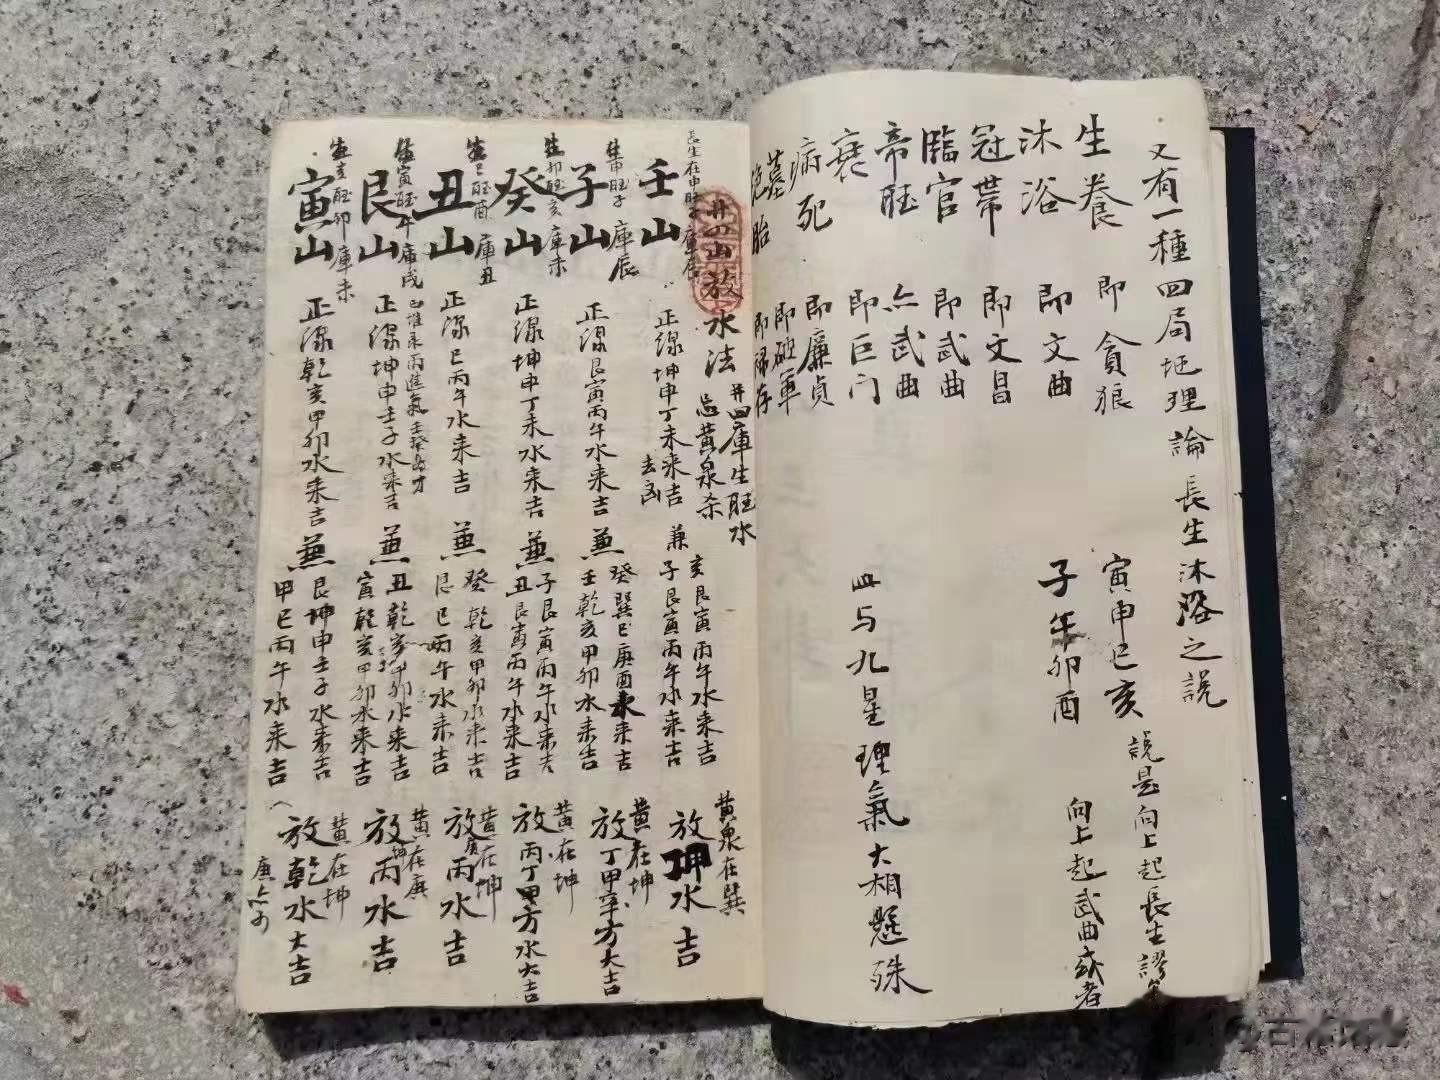 又有一種四局地理論長生沐浴之説
寅申巳亥
子午卯酉
説是向上起長生謬
向上起武曲或者
生養 即貪狼
沐浴 即文曲
冠帯 即文昌
臨官 即武曲
帝旺 亦武曲
衰 即巨门
病死 即廉貞
墓 即破軍
绝胎 即禄存
此与九星理氣大相懸殊
廿四山放水法 廾四庫生旺水
忌黄泉杀
長生在申旺子庫辰
壬山 正線坤申丁未来吉 兼 亥艮寅丙午水来吉
子艮寅丙午水来吉
黄泉在巽
放坤水吉
生申旺子庫辰
子山 正線艮寅丙午水来吉 兼 癸巽巳庚酉水来吉
壬乾亥甲卯水来吉
黄在坤
放丁甲辛方大吉
生卯旺亥庫未
癸山 正線坤申丁未水来吉 兼 子艮寅丙午水来吉
丑艮寅丙午水来吉
黄在坤
放丙丁甲方水大吉
生巳旺酉庫丑
丑山 正線巳丙午水来吉 兼 癸乾亥甲卯水来吉
艮巳丙午水来吉
黄在坤
放丙水吉
生寅旺午庫戌
艮山 正線坤申壬子水来吉 兼 丑乾亥甲卯水来吉
寅乾亥甲卯水来吉
黄在庚
放丙水吉
生亥旺卯庫未
寅山 正線乾亥甲卯水来吉 兼 艮坤申壬子水来吉
甲巳丙午水来吉
黄在坤
放乾水大吉
庚亦可